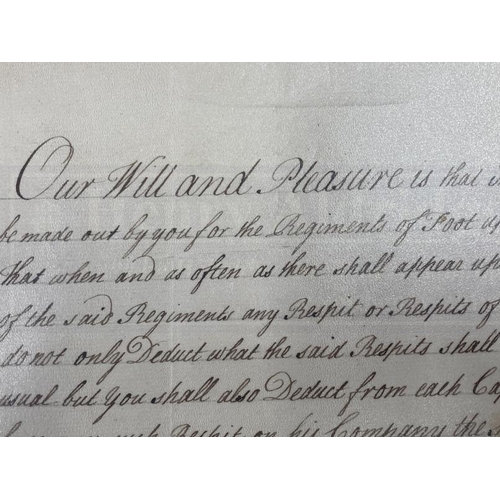 Our Will and Pleasure is that
be made out by you for the Regiments of Foot
that when and as often as there shall appear
of the said Regiments any Respit or Respits of
do not only Deduct what the said Respits shall
usual but You shall also Deduct from each
Respit on his Company the